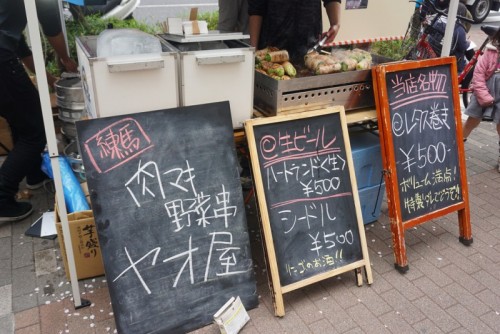 練馬
肉マキ
野菜串
ヤオ屋
◎生ビール
ハートランド〈生〉
¥500
シードル
¥500
リンゴのお酒!!
当店名物
◎レタス巻き
¥500-
ボリューム満点!